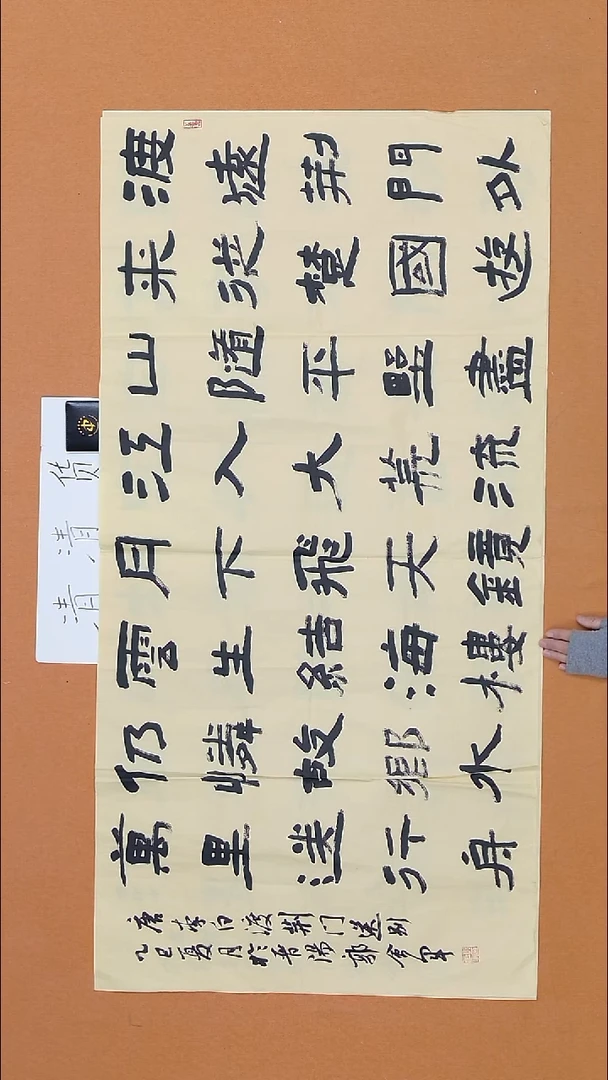 渡遠荆門外
来從楚國遊
山隨平野盡
江入大荒流
月下飛天鏡
雲生結海樓
仍憐故鄉水
萬里送行舟
唐李白渡荆门送别
乙巳夏月於
清清货